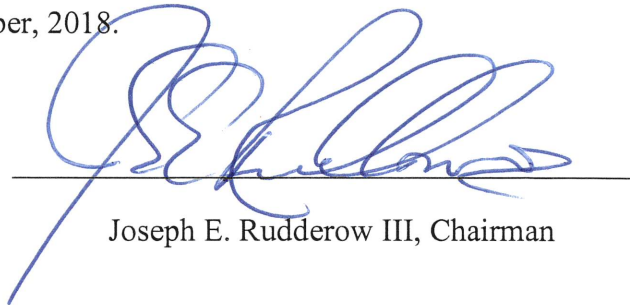 ber, 2018.
Joseph E. Rudderow III, Chairman